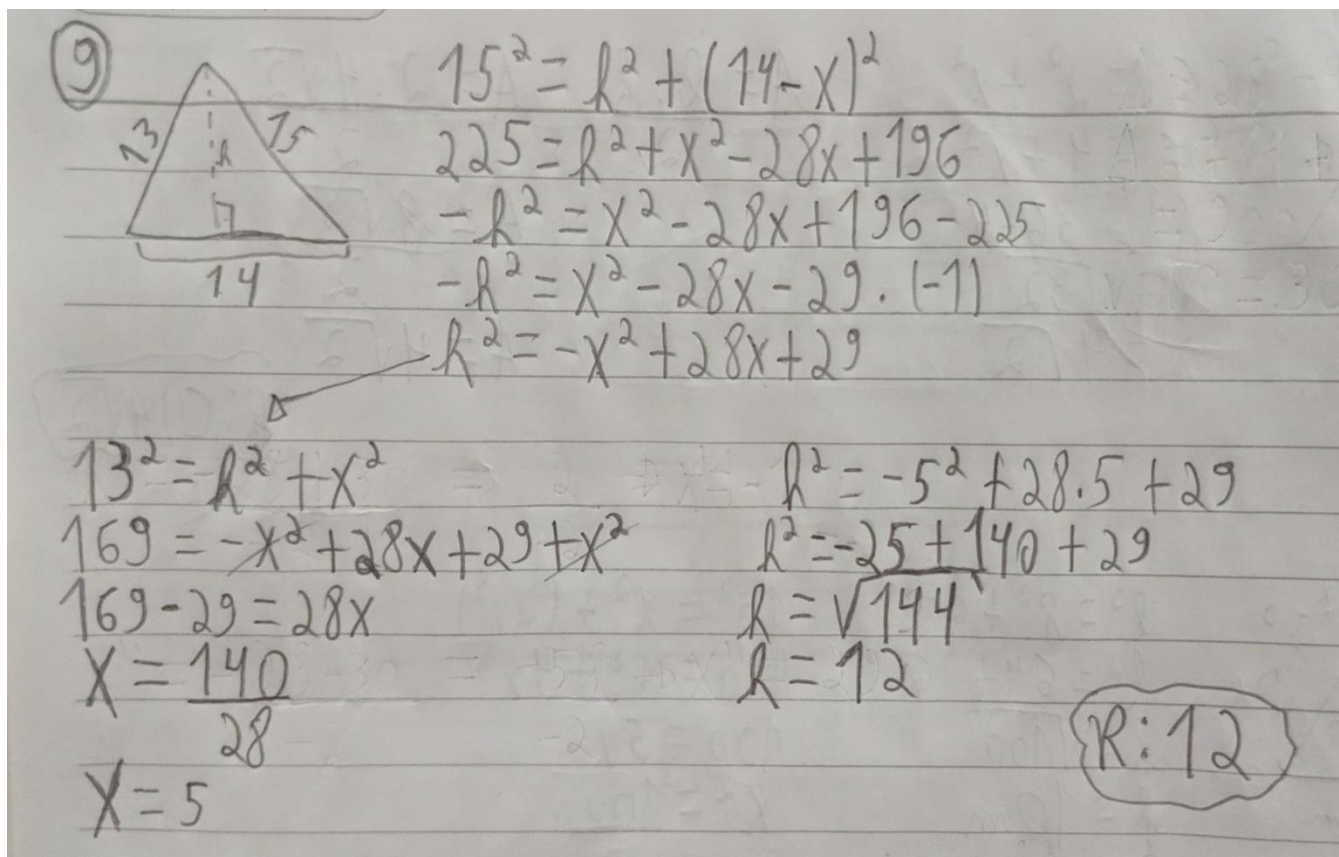 9
13
h
15
14
15² = h² + (14-x)²
225 = h² + x² - 28x + 196
-h² = x² - 28x + 196 - 225
-h² = x² - 28x - 29 . (-1)
h² = -x² + 28x + 29
13² = h² + x²
169 = -x² + 28x + 29 + x²
169 - 29 = 28x
x = 140/28
x = 5
h² = -5² + 28.5 + 29
h² = -25 + 140 + 29
h = √144
h = 12
R: 12